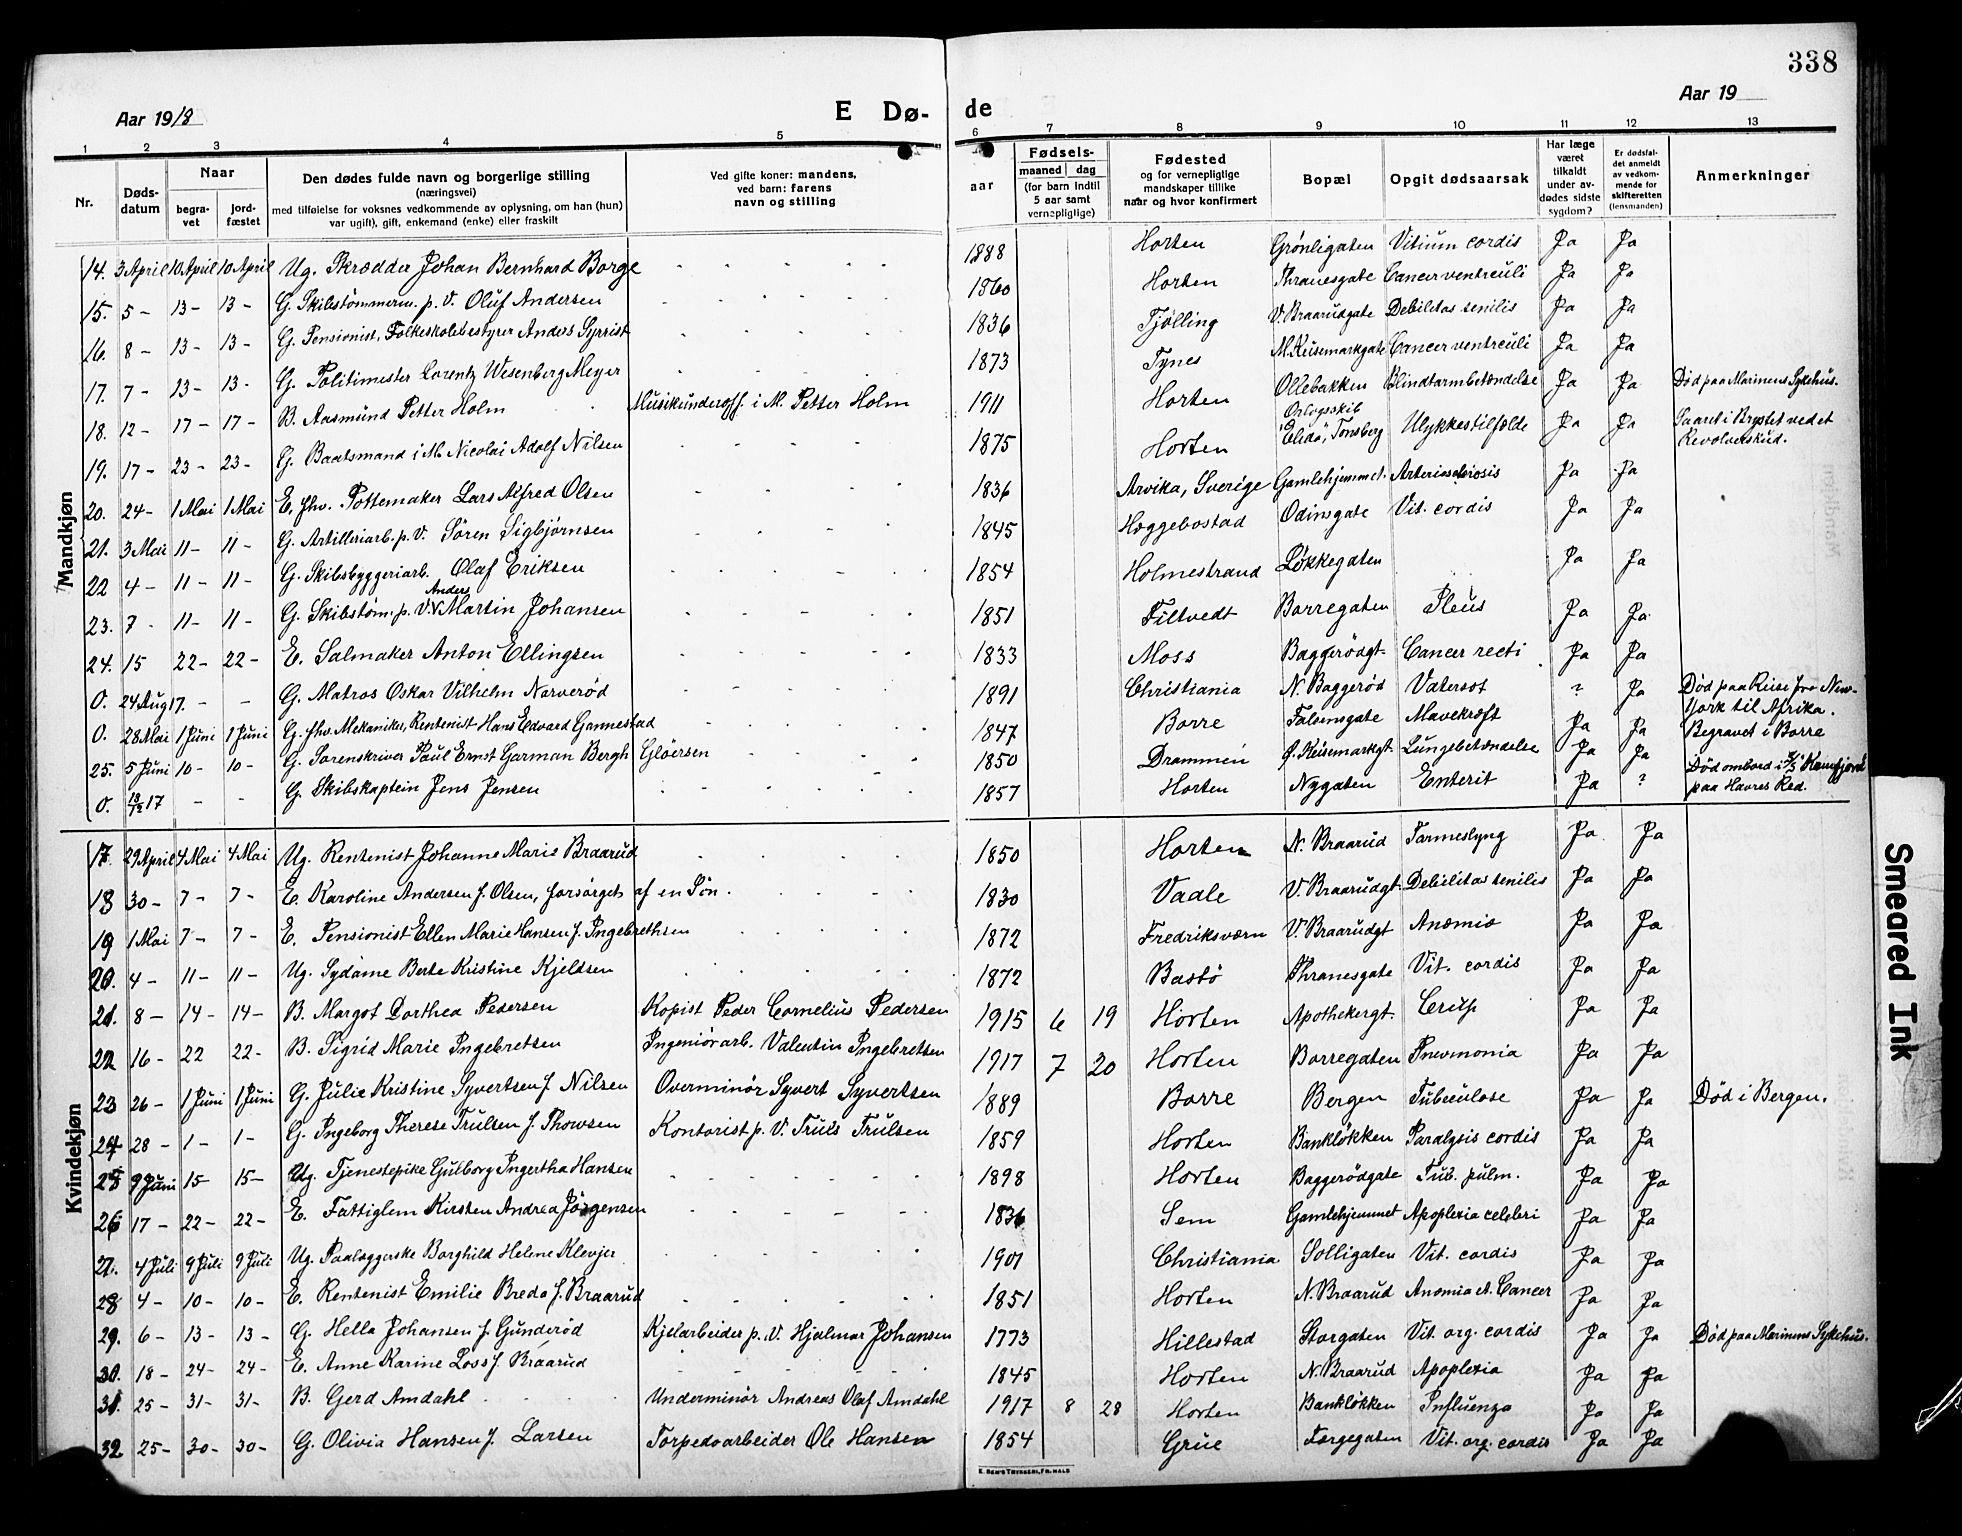 338
Aar 1918 E Dø- de Aar 19
1 2 3 4 5 6 7 8 9 10 11 12 13
Nr.
Døds-
datum
Naar
begra-
vet
jord-
fæstet
Den dødes fulde navn og borgerlige stilling
(næringsvei)
med tilføielse for voksnes vedkommende av oplysning, om han (hun)
var ugift), gift, enkemand (enke) eller fraskilt
Ved gifte koner: mandens,
ved barn: farens
navn og stilling
aar
Fødsels-
maaned dag
(for barn indtil
5 aar samt
vernepligtige)
Fødested
og for vernepligtige
mandskaper tillike
naar og hvor konfirmert
Bopæl
Opgit dødsaarsak
Har læge
været
tilkaldt
under av-
dødes sidste
sygdom?
Er dødsfal-
det anmeldt
av vedkom-
mende for
skifteretten
(lensmanden)
Anmerkninger
Mandkjøn
14. 3 April 10 April 10 April Ug. Skrædder Johan Bernhard Borge - 1888 Horten Grönligaten Vitium cordis Ja Ja
15. 5 - 13 - 13 - G. Skibstömmerm. p. V. Oluf Andersen - 1860 Horten Thranesgate Cancer ventreuli Ja Ja
16. 8 - 13 - 13 - G. Pensionist, Folkeskolebestyrer Anders Syrrist - 1836 Tjölling V. Braarudgate Debilitas senilis Ja Ja
17. 7 - 13 - 13 - G. Politimester Lorentz Wesenberg Meyer - 1873 Tynes M. Keisemarkgate Cancer ventreuli Ja Ja
18. 12 - 17 - 17 - B. Aasmund Petter Holm Musikunderoff. i M. Petter Holm 1911 Horten Ollebakken Blindtarmbetændelse Ja Ja Död paa Marinens Sykehus.
19. 17 - 23 - 23 - G. Baatsmand i M. Nicolai Adolf Nilsen - 1875 Horten Orlogsskib "Elida", Tønsberg Ulykkestilfælde Ja Ja Saaret i Brystet ved et Revolverskud.
20. 24 - 1 Mai 1 Mai E. fhv. Pottemaker Lars Alfred Olsen - 1836 Arvika, Sverige Gamlehjemmet. Ja Ja
21. 3 Mai 11 - 11 - G. Artilleriarb. p. V. Sören Sigbjørnsen - 1845 Hæggebostad Odinsgate Vit. cordis Ja Ja
22 4 - 11 - 11 - G. Skibsbyggeriarb. Olaf Eriksen - 1854 Holmestrand Løkkegaten Ja Ja
23. 7 - 11 - 11 - G. Skibstöm. p. V. Anders Martin Johansen - 1851 Filtvedt Borregaten Ja Ja
24. 15 22 - 22 - E. Salmaker Anton Ellingsen - 1833 Moss Baggerödgt. Cancer recti Ja Ja
0. 24 Aug 17. - - G. Matros Oskar Vilhelm Narveröd - 1891 Christiania N. Baggeröd Vatersot ? Ja Död paa Reise fra New-York til Afrika.
0. 28 Mai 1 Juni 1 Juni G. fhv. Mekaniker, Rentenist Hans Edvard Gannestad - 1847 Borre Falvensgate Mavekræft Ja Ja Begravet i Borre
25. 5 Juni 10 - 10 - G. Sorenskriver Paul Ernst Garman Bergh Glöersen - 1850 Drammen Ø. Keisemarkgt. Lungebetændelse Ja Ja
0. 18/12 17 - - G. Skibskaptein Jens Jensen - 1857 Horten Nygaten Enterit Ja ? Död ombord i paa Havres Red.
Kvindekjøn
17. 29 April 4 Mai 4 Mai Ug. Rentenist Johanne Marie Braarud - 1850 Horten N. Braarud Tarmeslyng Ja Ja
18 30 - 7 - 7 - E. Karoline Andersen f. Olsen, forsørget af en Søn. - 1830 Vaale V. Braarudgt. Debilitas senilis Ja Ja
19 1 Mai 7 - 7 - E. Pensionist Ellen Marie Hansen f. Ingebrethsen - 1872 Fredriksværn V. Braarudgt Anæmia Ja Ja
20. 4 - 11 - 11 - Ug. Sydame Berte Kristine Kjeldsen - 1872 Bastö Thranesgate Vit. cordis Ja Ja
21. 8 - 14 - 14 - B. Margot Dorthea Pedersen Kopist Peder Cornelius Pedersen 1915 6 19 Horten Apothekergt. Crup Ja Ja
22 16 - 22 22 - B. Sigrid Marie Ingebretsen Ingeniörarb. Valentin Ingebretsen 1917 7 20 Horten Borregaten Pneumonia Ja Ja
23 26 - 1 Juni 1 Juni G. Julie Kristine Syvertsen f. Nilsen Overminör Syvert Syvertsen 1889 Borre Bergen Tubeculose Ja Ja Död i Bergen.
24 28 - 1 - 1 - G. Ingeborg Therese Trulsen f. Thowsen Kontorist p. V. Truls Trulsen 1859 Horten Bankløkken Paralysis cordis Ja Ja
25 9 Juni 15 - 15 - Ug. Tjenestepike Gulborg Ingertha Hansen - 1898 Horten Baggerödgate Tub. pulm. Ja Ja
26 17 - 22 - 22 - E. Fattiglem Kirsten Andrea Jörgensen - 1836 Sem Gamlehjemmet Apoplexia celebri Ja Ja
27. 4 Juli 9 Juli 9 Juli Ug. Paalæggerske Borghild Helene Klevjer - 1901 Christiania Solligaten Vit. cordis Ja Ja
28 4 - 10 - 10 - E. Rentenist Emilie Breda f. Braarud - 1851 Horten N. Braarud Anæmia Cancer Ja Ja
29. 6 - 13 - 13 - G. Hella Johansen f. Gunderöd Kjelarbeider p. V. Hjalmar Johansen 1773 Hillestad Storgaten Vit. org. cordis Ja Ja Död paa Marinens Sykehus.
30. 18 - 24 - 24 - E. Anne Karine Loss f. Braarud - 1845 Horten N. Braarud Apoplexia Ja Ja
31. 25 - 31 - 31 - B. Gerd Amdahl Underminör Andreas Olaf Amdahl 1917 8 28 Horten Bankløkken Influenza Ja Ja
32 25 - 30 - 30 - G. Olivia Hansen f. Larsen Torpedoarbeider Ole Hansen 1854 Grue Forgegaten Vit. org. cordis Ja Ja
E. SEM'S TRYKKERI, FR.HALD
Smeared Ink